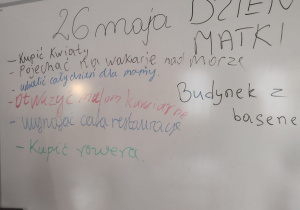 26 maja DZIEŃ
MATKI
- Kupić kwiaty
- Pojechać na wakacje nad morze
- ubielić cały dzień dla mamy.
- Otworzyć małą kawiarnę
- wynająć całą restaurację
- Kupić rowera.
Budynek z
basene